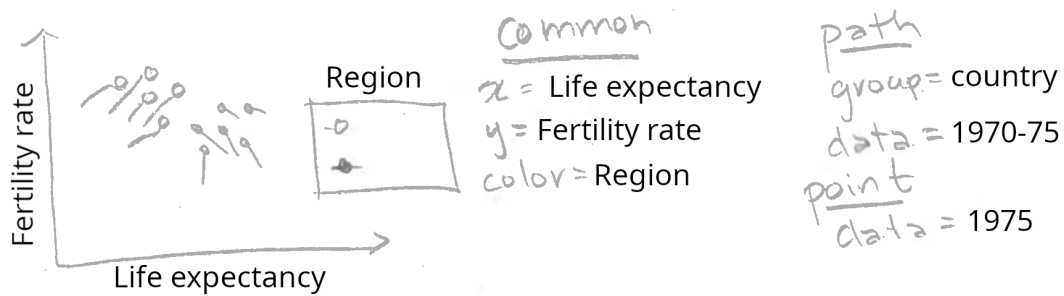 Fertility rate
Life expectancy
Region
common
x = Life expectancy
y = Fertility rate
color = Region
path
group = country
data = 1970-75
point
data = 1975